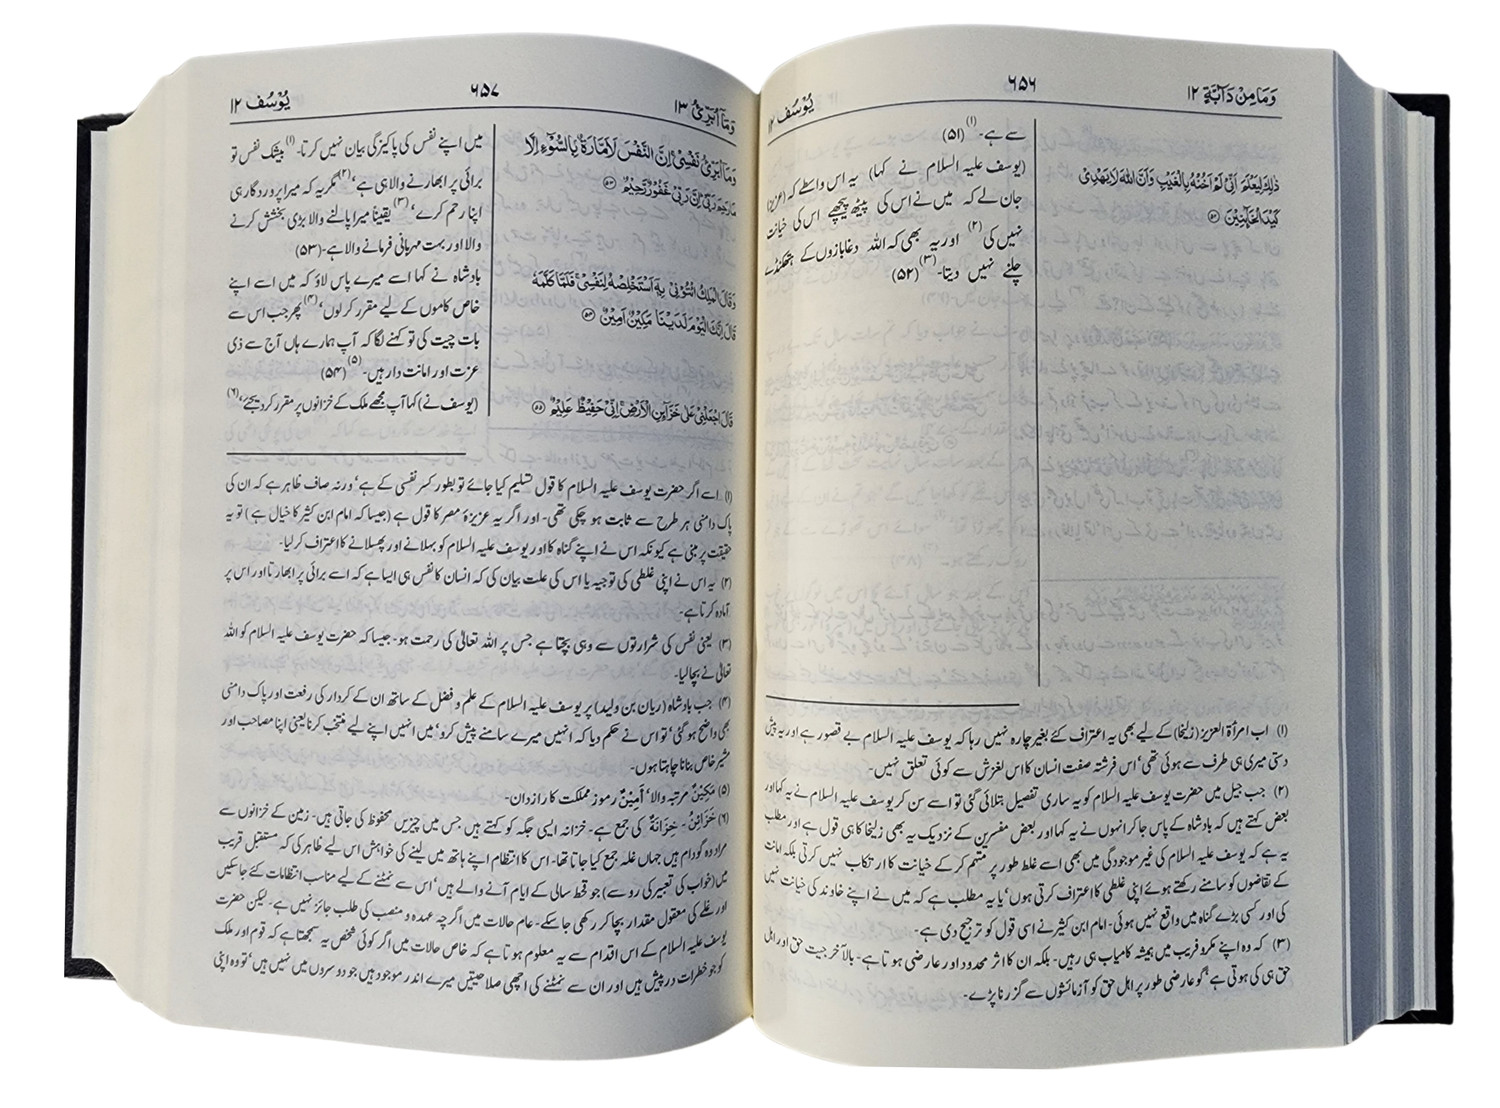 وَمَا مِنْ دَآبَّةٍ ۱۲
۶۵۶
يُوسُف ۱۲
ذٰلِكَ لِيَعْلَمَ اَنِّيْ لَمْ اَخُنْهُ بِالْغَيْبِ وَاَنَّ اللهَ لَا يَهْدِيْ
كَيْدَ الْخَآئِنِيْنَ ۵۲
سے ہے۔ (۱) (۵۱)
(یوسف علیہ السلام نے کہا) یہ اس واسطے کہ (عزیز)
جان لے کہ میں نے اس کی پیٹھ پیچھے اس کی خیانت
نہیں کی (۲) اور یہ بھی کہ اللہ دغابازوں کے ہتھکنڈے
چلنے نہیں دیتا۔ (۳) (۵۲)
(۱) اب امرأۃ العزیز (زلیخا) کے لیے بھی یہ اعتراف کئے بغیر چارہ نہیں رہا کہ یوسف علیہ السلام بے قصور ہے اور یہ پیش
دستی میری ہی طرف سے ہوئی تھی، اس فرشتہ صفت انسان کا اس لغزش سے کوئی تعلق نہیں۔
(۲) جب جیل میں حضرت یوسف علیہ السلام کو یہ ساری تفصیل بتلائی گئی تو اسے سن کر یوسف علیہ السلام نے یہ کہا اور
بعض کہتے ہیں کہ بادشاہ کے پاس جا کر انہوں نے یہ کہا اور بعض مفسرین کے نزدیک یہ بھی زلیخا کا ہی قول ہے اور مطلب
یہ ہے کہ یوسف علیہ السلام کی غیر موجودگی میں بھی اسے غلط طور پر متہم کر کے خیانت کا ارتکاب نہیں کرتی بلکہ امانت
کے تقاضوں کو سامنے رکھتے ہوئے اپنی غلطی کا اعتراف کرتی ہوں، یا یہ مطلب ہے کہ میں نے اپنے خاوند کی خیانت نہیں
کی اور کسی بڑے گناہ میں واقع نہیں ہوئی۔ امام ابن کثیر نے اسی قول کو ترجیح دی ہے۔
(۳) کہ وہ اپنے مکر و فریب میں ہمیشہ کامیاب ہی رہیں۔ بلکہ ان کا اثر محدود اور عارضی ہوتا ہے۔ بالآخر جیت حق اور اہل
حق ہی کی ہوتی ہے گو عارضی طور پر اہل حق کو آزمائشوں سے گزرنا پڑے۔
وَمَآ اُبَرِّئُ ۱۳
۶۵۷
يُوسُف ۱۲
وَمَآ اُبَرِّئُ نَفْسِيْ اِنَّ النَّفْسَ لَاَمَّارَةٌ بِالسُّوْٓءِ اِلَّا
مَا رَحِمَ رَبِّيْ اِنَّ رَبِّيْ غَفُوْرٌ رَّحِيْمٌ ۵۳
وَقَالَ الْمَلِكُ ائْتُوْنِيْ بِهٖٓ اَسْتَخْلِصْهُ لِنَفْسِيْ فَلَمَّا كَلَّمَهٗ
قَالَ اِنَّكَ الْيَوْمَ لَدَيْنَا مَكِيْنٌ اَمِيْنٌ ۵۴
قَالَ اجْعَلْنِيْ عَلٰى خَزَآئِنِ الْاَرْضِ اِنِّيْ حَفِيْظٌ عَلِيْمٌ ۵۵
میں اپنے نفس کی پاکیزگی بیان نہیں کرتا۔ (۱) بیشک نفس تو
برائی پر ابھارنے والا ہی ہے، (۲) مگر یہ کہ میرا پروردگار ہی
اپنا رحم کرے، (۳) یقیناً میرا پالنے والا بڑی بخشش کرنے
والا اور بہت مہربانی فرمانے والا ہے۔ (۵۳)
بادشاہ نے کہا اسے میرے پاس لاؤ کہ میں اسے اپنے
خاص کاموں کے لیے مقرر کر لوں، (۴) پھر جب اس سے
بات چیت کی تو کہنے لگا کہ آپ ہمارے ہاں آج سے ذی
عزت اور امانت دار ہیں۔ (۵) (۵۴)
(یوسف نے) کہا آپ مجھے ملک کے خزانوں پر مقرر کر دیجئے، (۶)
(۱) اسے اگر حضرت یوسف علیہ السلام کا قول تسلیم کیا جائے تو بطور کسر نفسی کے ہے، ورنہ صاف ظاہر ہے کہ ان کی
پاک دامنی ہر طرح سے ثابت ہو چکی تھی۔ اور اگر یہ عزیزۂ مصر کا قول ہے (جیسا کہ امام ابن کثیر کا خیال ہے) تو یہ
حقیقت پر مبنی ہے کیونکہ اس نے اپنے گناہ کا اور یوسف علیہ السلام کو بہلانے اور پھسلانے کا اعتراف کر لیا۔
(۲) یہ اس نے اپنی غلطی کی توجیہ یا اس کی علت بیان کی کہ انسان کا نفس ہی ایسا ہے کہ اسے برائی پر ابھارتا اور اس پر
آمادہ کرتا ہے۔
(۳) یعنی نفس کی شرارتوں سے وہی بچتا ہے جس پر اللہ تعالیٰ کی رحمت ہو۔ جیسا کہ حضرت یوسف علیہ السلام کو اللہ
تعالیٰ نے بچا لیا۔
(۴) جب بادشاہ (ریان بن ولید) پر یوسف علیہ السلام کے علم و فضل کے ساتھ ان کے کردار کی رفعت اور پاک دامنی
بھی واضح ہو گئی، تو اس نے حکم دیا کہ انہیں میرے سامنے پیش کرو، میں انہیں اپنے لیے منتخب کرنا یعنی اپنا مصاحب اور
مشیر خاص بنانا چاہتا ہوں۔
(۵) مَكِيْنٌ مرتبہ والا، اَمِيْنٌ رموز مملکت کا راز دان۔
(۶) خَزَائِنُ۔ خِزَانَةٌ کی جمع ہے۔ خزانہ ایسی جگہ کو کہتے ہیں جس میں چیزیں محفوظ کی جاتی ہیں۔ زمین کے خزانوں سے
مراد وہ گودام ہیں جہاں غلہ جمع کیا جاتا تھا۔ اس کا انتظام اپنے ہاتھ میں لینے کی خواہش اس لیے ظاہر کی کہ مستقبل قریب
میں (خواب کی تعبیر کی رو سے) جو قحط سالی کے ایام آنے والے ہیں، اس سے نمٹنے کے لیے مناسب انتظامات کئے جاسکیں
اور غلے کی معقول مقدار بچا کر رکھی جا سکے۔ عام حالات میں اگرچہ عہدہ و منصب کی طلب جائز نہیں ہے۔ لیکن حضرت
یوسف علیہ السلام کے اس اقدام سے یہ معلوم ہوتا ہے کہ خاص حالات میں اگر کوئی شخص یہ سمجھتا ہے کہ قوم اور ملک
کو جو خطرات درپیش ہیں اور ان سے نمٹنے کی اچھی صلاحیتیں میرے اندر موجود ہیں جو دوسروں میں نہیں ہیں، تو وہ اپنی